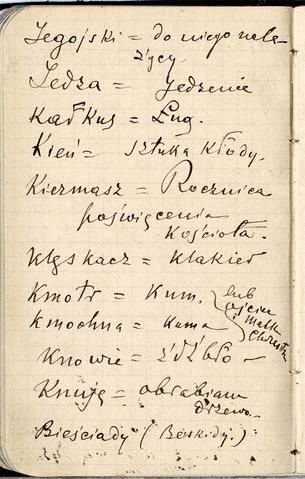 Jegojski = do niego nale-
żący
Jedza = jedzenie
Kałkus = Ług.
Kień = sztuka kłody.
Kiermasz = Rocznica
poświęcenia
Kościoła.
Klyskacz = Klakier
Kmotr = Kum. lub ojciec
kmochna = Kuma i Matka Chrzestna
Knowie = źdźbło -
Knuję = obrabiam
drzewo.
Bieściady (Beskidy.)